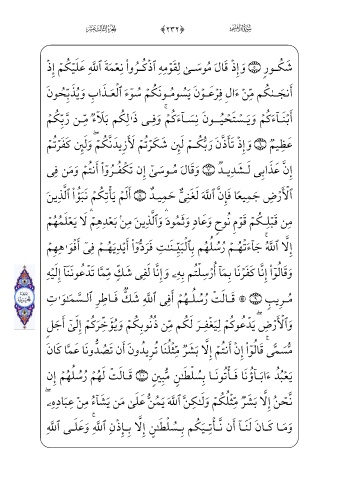 ﴿٢٣٢﴾
شَكُورٍ ۝ وَإِذْ قَالَ مُوسَىٰ لِقَوْمِهِ ٱذْكُرُوا۟ نِعْمَةَ ٱللَّهِ عَلَيْكُمْ إِذْ
أَنجَىٰكُم مِّنْ ءَالِ فِرْعَوْنَ يَسُومُونَكُمْ سُوٓءَ ٱلْعَذَابِ وَيُذَبِّحُونَ
أَبْنَآءَكُمْ وَيَسْتَحْيُونَ نِسَآءَكُمْ ۚ وَفِى ذَٰلِكُم بَلَآءٌ مِّن رَّبِّكُمْ
عَظِيمٌ ۝ وَإِذْ تَأَذَّنَ رَبُّكُمْ لَئِن شَكَرْتُمْ لَأَزِيدَنَّكُمْ ۖ وَلَئِن كَفَرْتُمْ
إِنَّ عَذَابِى لَشَدِيدٌ ۝ وَقَالَ مُوسَىٰٓ إِن تَكْفُرُوٓا۟ أَنتُمْ وَمَن فِى
ٱلْأَرْضِ جَمِيعًا فَإِنَّ ٱللَّهَ لَغَنِىٌّ حَمِيدٌ ۝ أَلَمْ يَأْتِكُمْ نَبَؤُا۟ ٱلَّذِينَ
مِن قَبْلِكُمْ قَوْمِ نُوحٍ وَعَادٍ وَثَمُودَ ۛ وَٱلَّذِينَ مِنۢ بَعْدِهِمْ ۛ لَا يَعْلَمُهُمْ
إِلَّا ٱللَّهُ ۚ جَآءَتْهُمْ رُسُلُهُم بِٱلْبَيِّنَٰتِ فَرَدُّوٓا۟ أَيْدِيَهُمْ فِىٓ أَفْوَٰهِهِمْ
وَقَالُوٓا۟ إِنَّا كَفَرْنَا بِمَآ أُرْسِلْتُم بِهِۦ وَإِنَّا لَفِى شَكٍّ مِّمَّا تَدْعُونَنَآ إِلَيْهِ
مُرِيبٍ ۝ ۞ قَالَتْ رُسُلُهُمْ أَفِى ٱللَّهِ شَكٌّ فَاطِرِ ٱلسَّمَٰوَٰتِ
وَٱلْأَرْضِ ۖ يَدْعُوكُمْ لِيَغْفِرَ لَكُم مِّن ذُنُوبِكُمْ وَيُؤَخِّرَكُمْ إِلَىٰٓ أَجَلٍ
مُّسَمًّى ۚ قَالُوٓا۟ إِنْ أَنتُمْ إِلَّا بَشَرٌ مِّثْلُنَا تُرِيدُونَ أَن تَصُدُّونَا عَمَّا كَانَ
يَعْبُدُ ءَابَآؤُنَا فَأْتُونَا بِسُلْطَٰنٍ مُّبِينٍ ۝ قَالَتْ لَهُمْ رُسُلُهُمْ إِن
نَّحْنُ إِلَّا بَشَرٌ مِّثْلُكُمْ وَلَٰكِنَّ ٱللَّهَ يَمُنُّ عَلَىٰ مَن يَشَآءُ مِنْ عِبَادِهِۦ ۖ
وَمَا كَانَ لَنَآ أَن نَّأْتِيَكُم بِسُلْطَٰنٍ إِلَّا بِإِذْنِ ٱللَّهِ ۚ وَعَلَى ٱللَّهِ